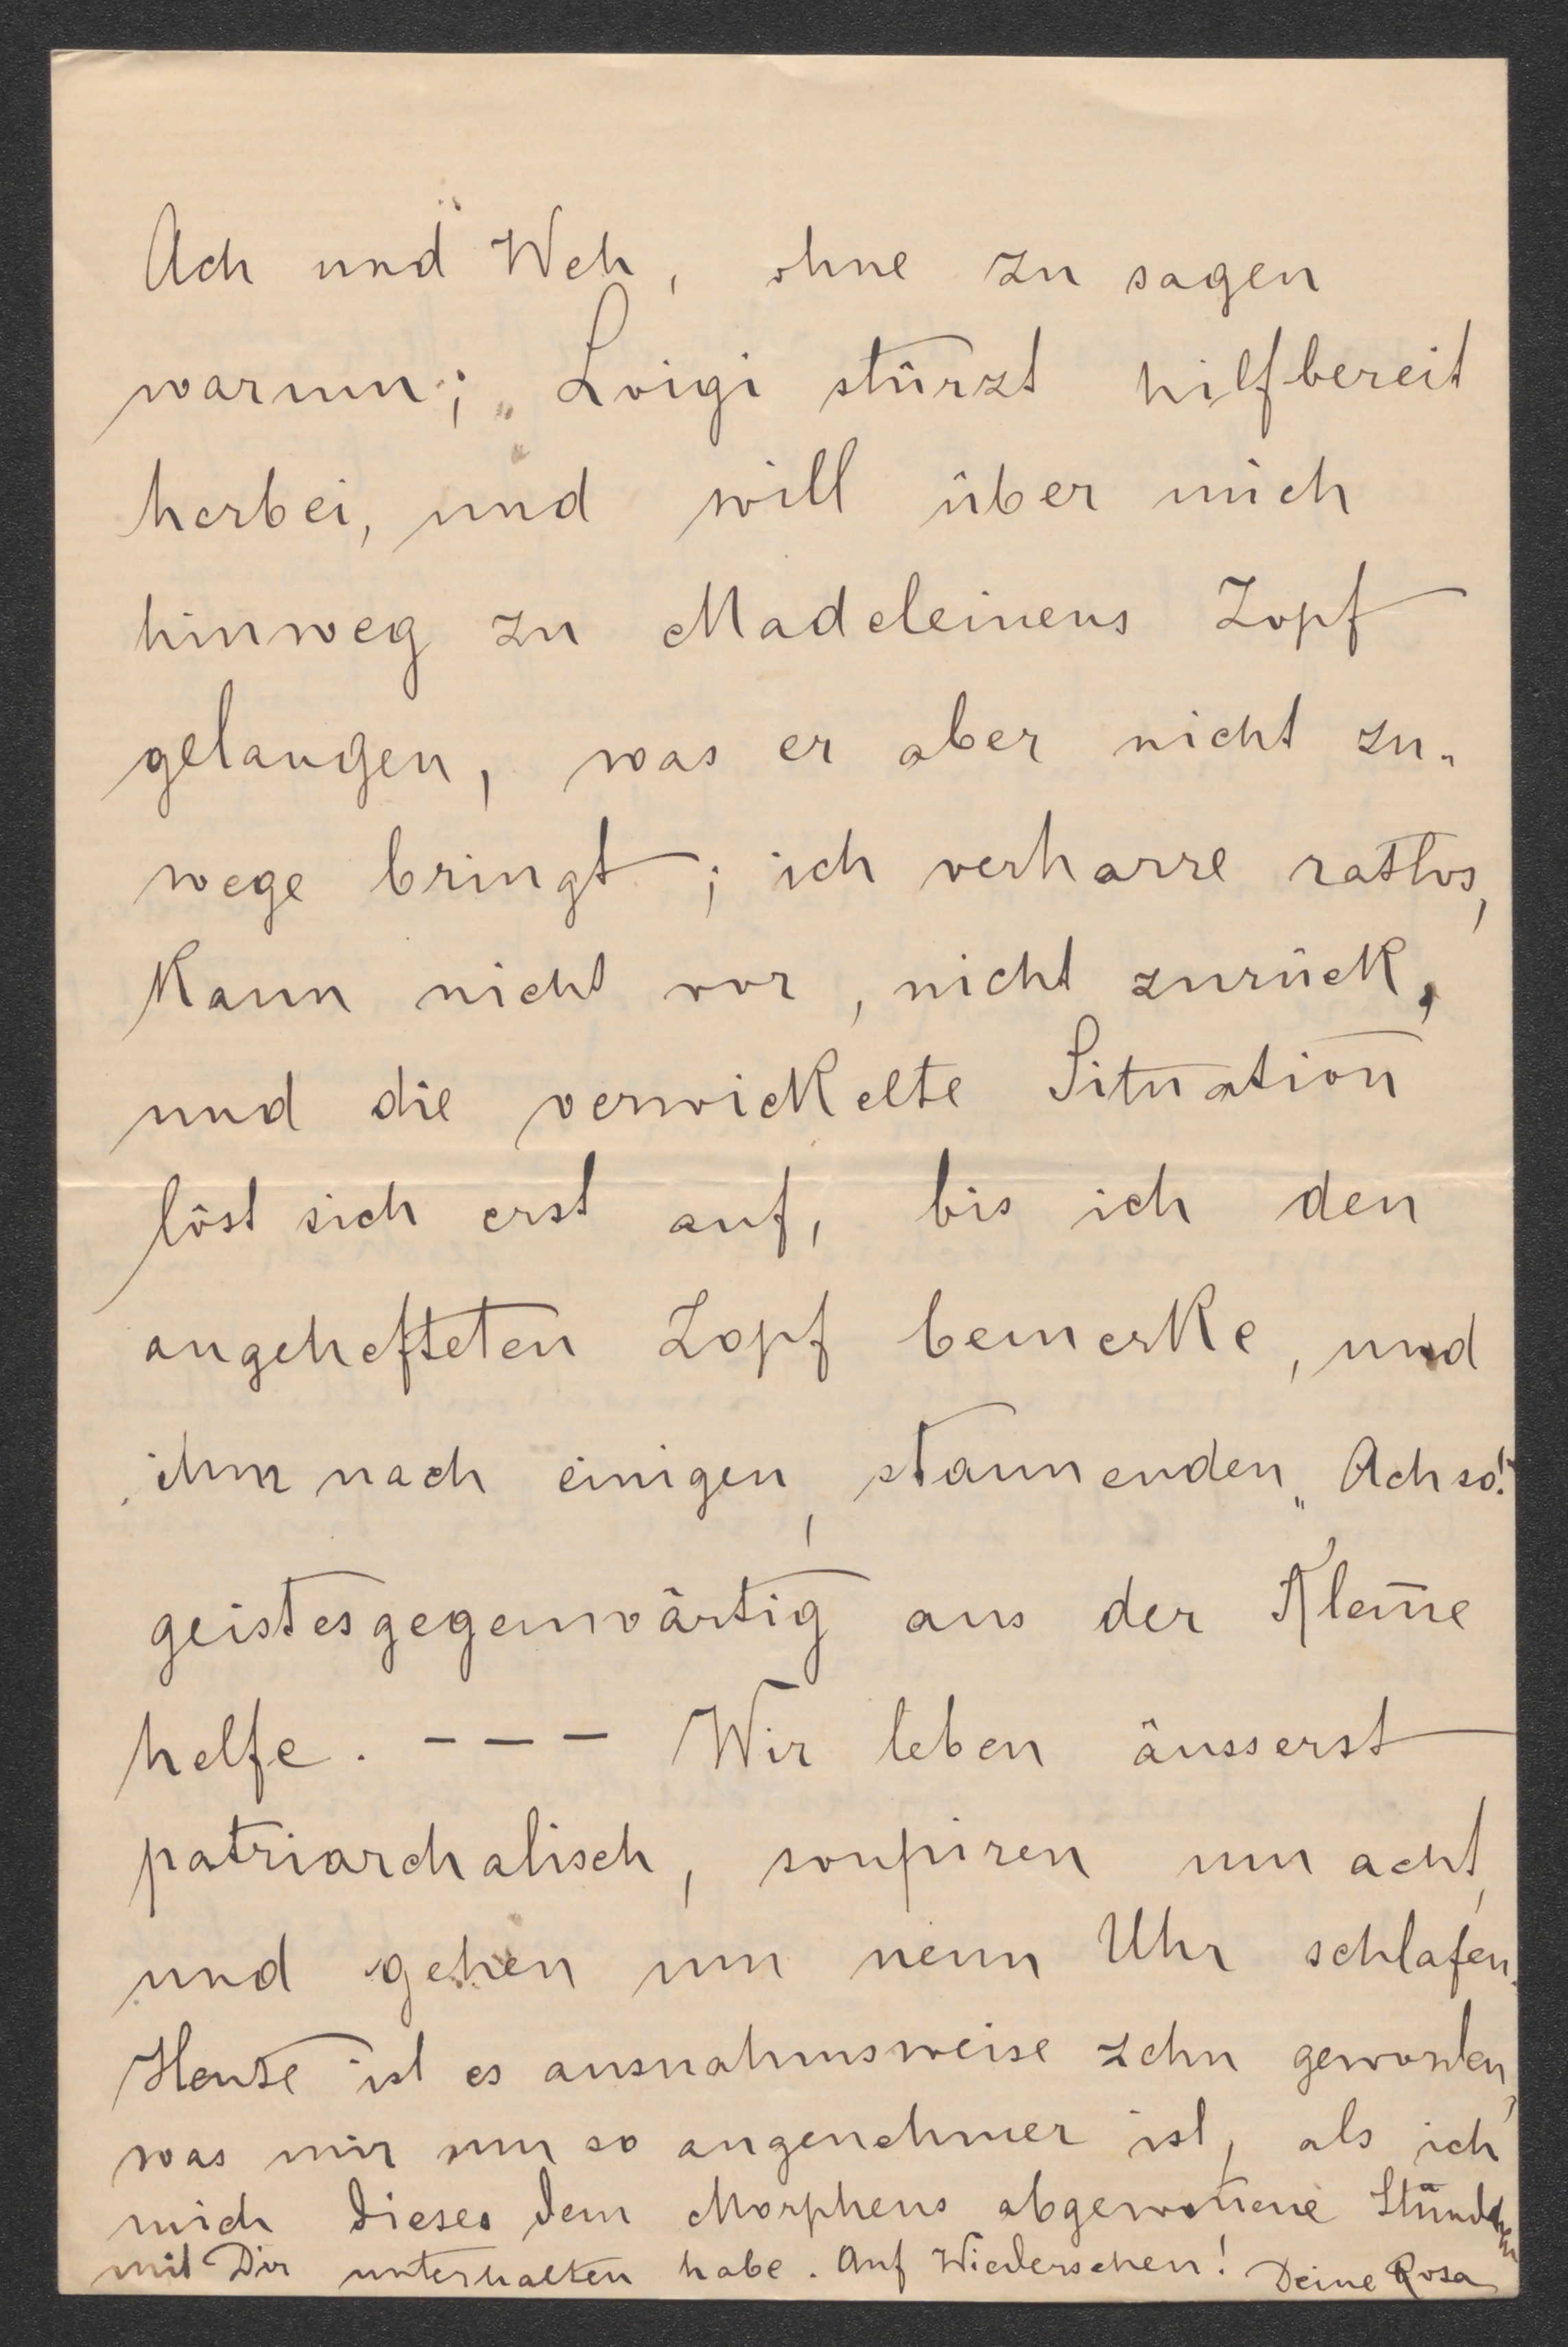 Ach und Weh, ohne zu sagen
warum; Luigi stürzt hilfbereit
herbei, und will über mich
hinweg zu Madeleinens Zopf
gelangen, was er aber nicht zu-
wege bringt; ich verharre ratlos,
kann nicht vor, nicht zurück,
und die verwickelte Situation
löst sich erst auf, bis ich den
angehefteten Zopf bemerke, und
ihm nach einigen, staunenden „Ach so!"
geistesgegenwärtig aus der Klem̅e
helfe. – – – Wir leben äusserst
patriarchalisch, soupiren um acht,
und gehen um neun Uhr schlafen.
Heute ist es ausnahmsweise zehn geworden,
was mir um so angenehmer ist, als ich
mich dieses dem Morpheus abgewon̅ene Stündchen
mit Dir unterhalten habe. Auf Wiedersehen! Deine Rosa